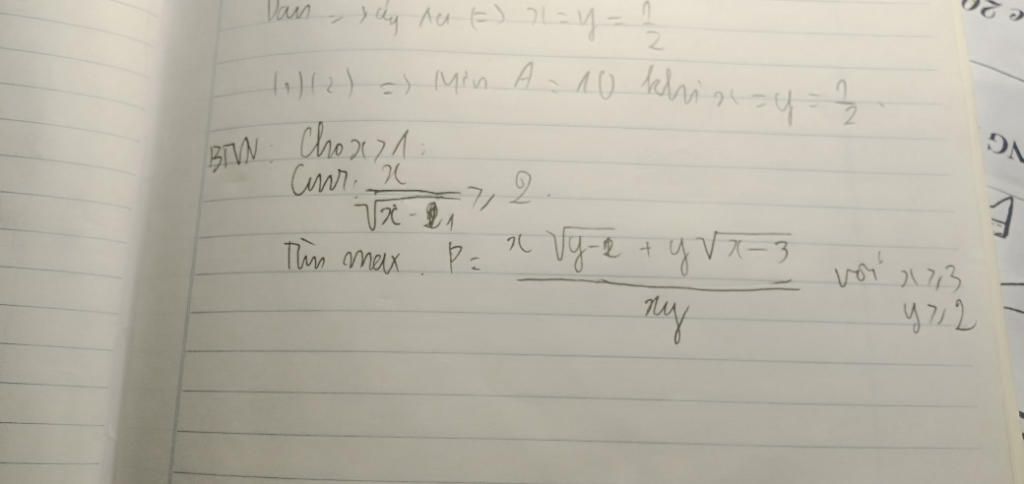 => x = y = 1/2
(1)(2) => Min A = 10 khi x = y = 1/2.
BTVN: Cho x > 1:
Cmr: x/√(x-1) ≥ 2.
Tìm max. P = (x√(y-2) + y√(x-3))/(xy) với x ≥ 3
y ≥ 2